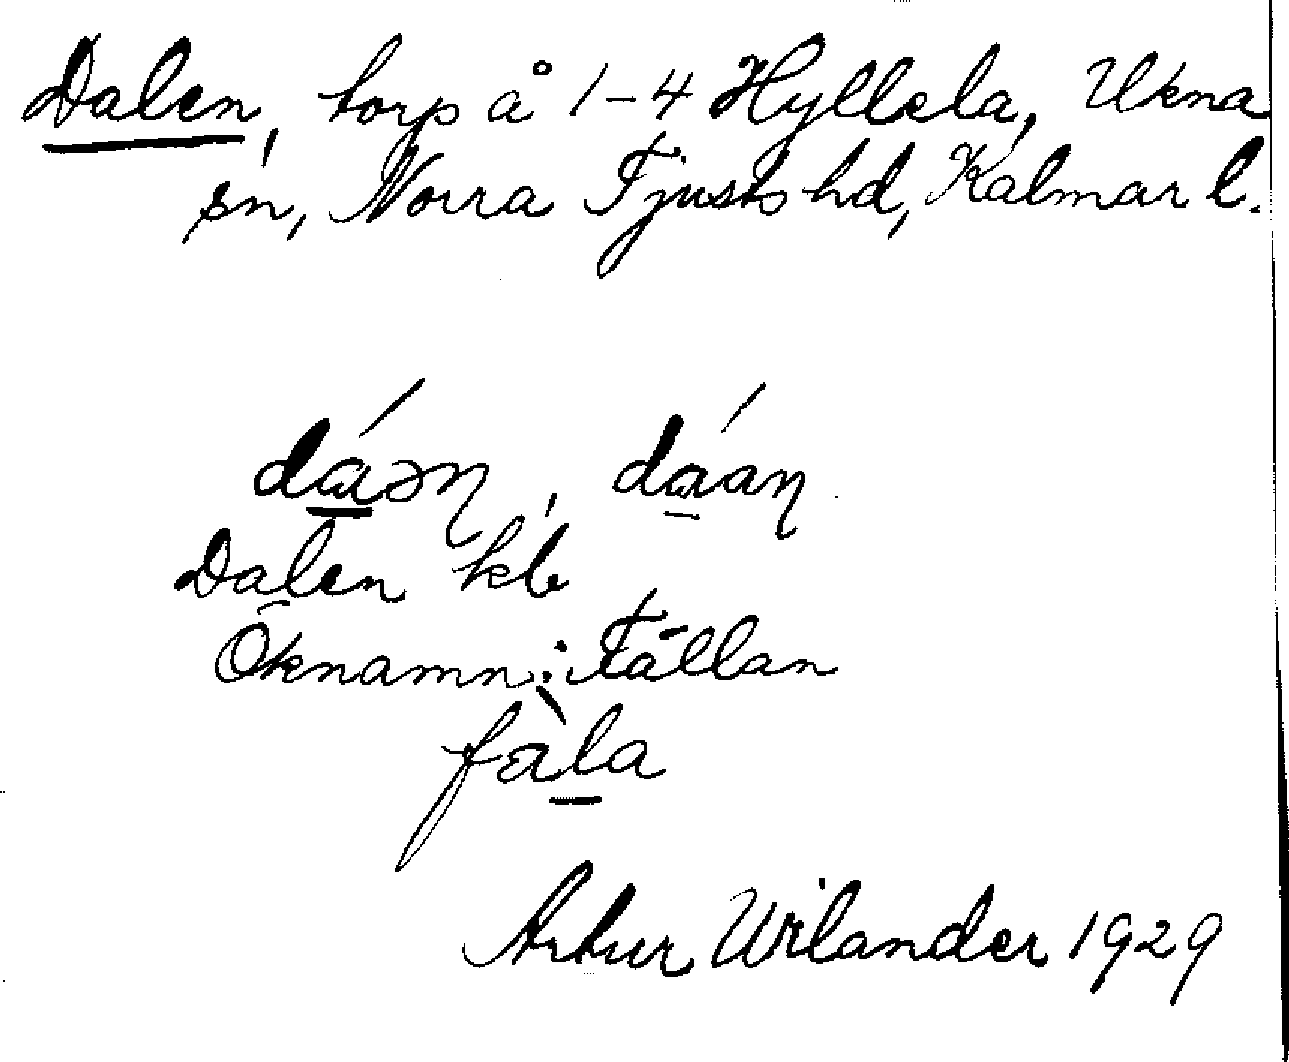 Dalen, torp å 1-4 Hyllela, Ukna
sn, Norra Tjusts hd, Kalmar l.
dáəη, dáaη
Dalen kb
Öknamn: Fällan
fàla
Artur Wilander 1929